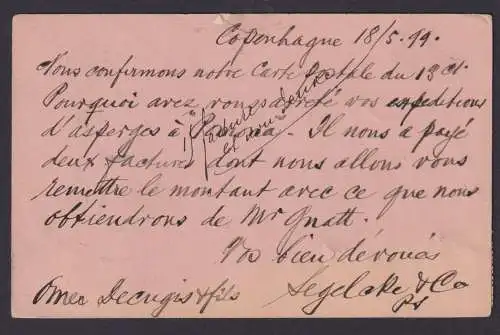 Copenhague 18/5. 99.
Nous confirmons notre Carte Postale du 13 ct.
Pourquoi avez vous arrêté vos expéditions
d'asperges à . Il nous a payé
deux factures dont nous allons vous
remettre le montant avec ce que nous
obtiendrons de Mr Gnatt.
Vos bien dévoués
Omer Decugis & fils
Segelcke & Co